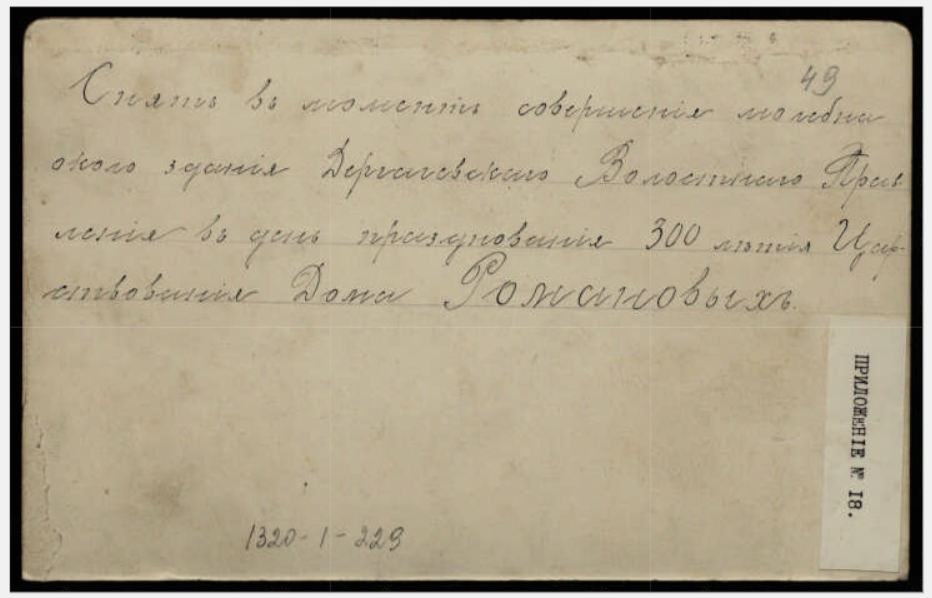 49
Снятъ въ моментъ совершенія молебна
около зданія Дергачевскаго Волостного Прав
ленія въ день празднованія 300 лѣтія Цар-
ствованія Дома Романовыхъ.
ПРИЛОЖЕНІЕ № 18.
1320-1-229